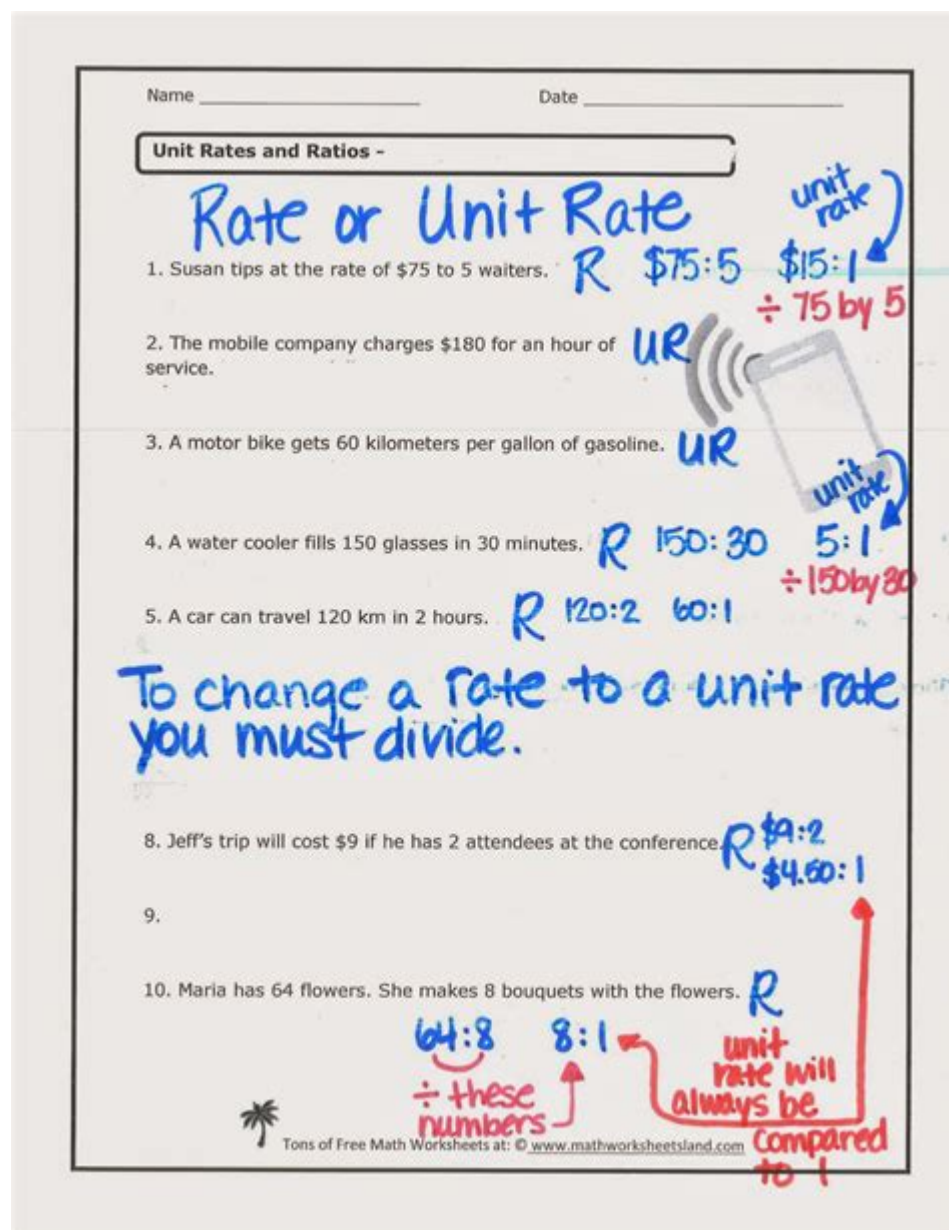 Name
Date
Unit Rates and Ratios -
Rate or Unit Rate
unit
rate
1. Susan tips at the rate of $75 to 5 waiters. R $75:5 $15:1
÷ 75 by 5
2. The mobile company charges $180 for an hour of
service.
UR
3. A motor bike gets 60 kilometers per gallon of gasoline. UR
unit
rate
4. A water cooler fills 150 glasses in 30 minutes. R 150:30 5:1
÷150by30
5. A car can travel 120 km in 2 hours. R 120:2 60:1
To change a rate to a unit rate
you must divide.
8. Jeff's trip will cost $9 if he has 2 attendees at the conference. R $9:2
$4.50:1
9.
10. Maria has 64 flowers. She makes 8 bouquets with the flowers. R
64:8 8:1
÷ these
numbers
unit
rate will
always be
compared
to 1
Tons of Free Math Worksheets at: © www.mathworksheetsland.com